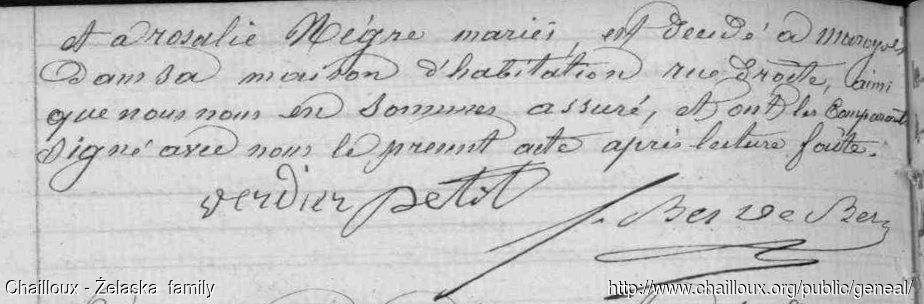 et a rosalie Nègre mariés, est décédé a maroyols
Dans sa maison d'habitation rue droite, ainsi
que nous nous en sommes assuré, et ont les Comparants
signé avec nous le present acte après lecture faite.
Verdier petit
Bes de Berc
Chailloux - Żelaska family
http://www.chailloux.org/public/geneal/